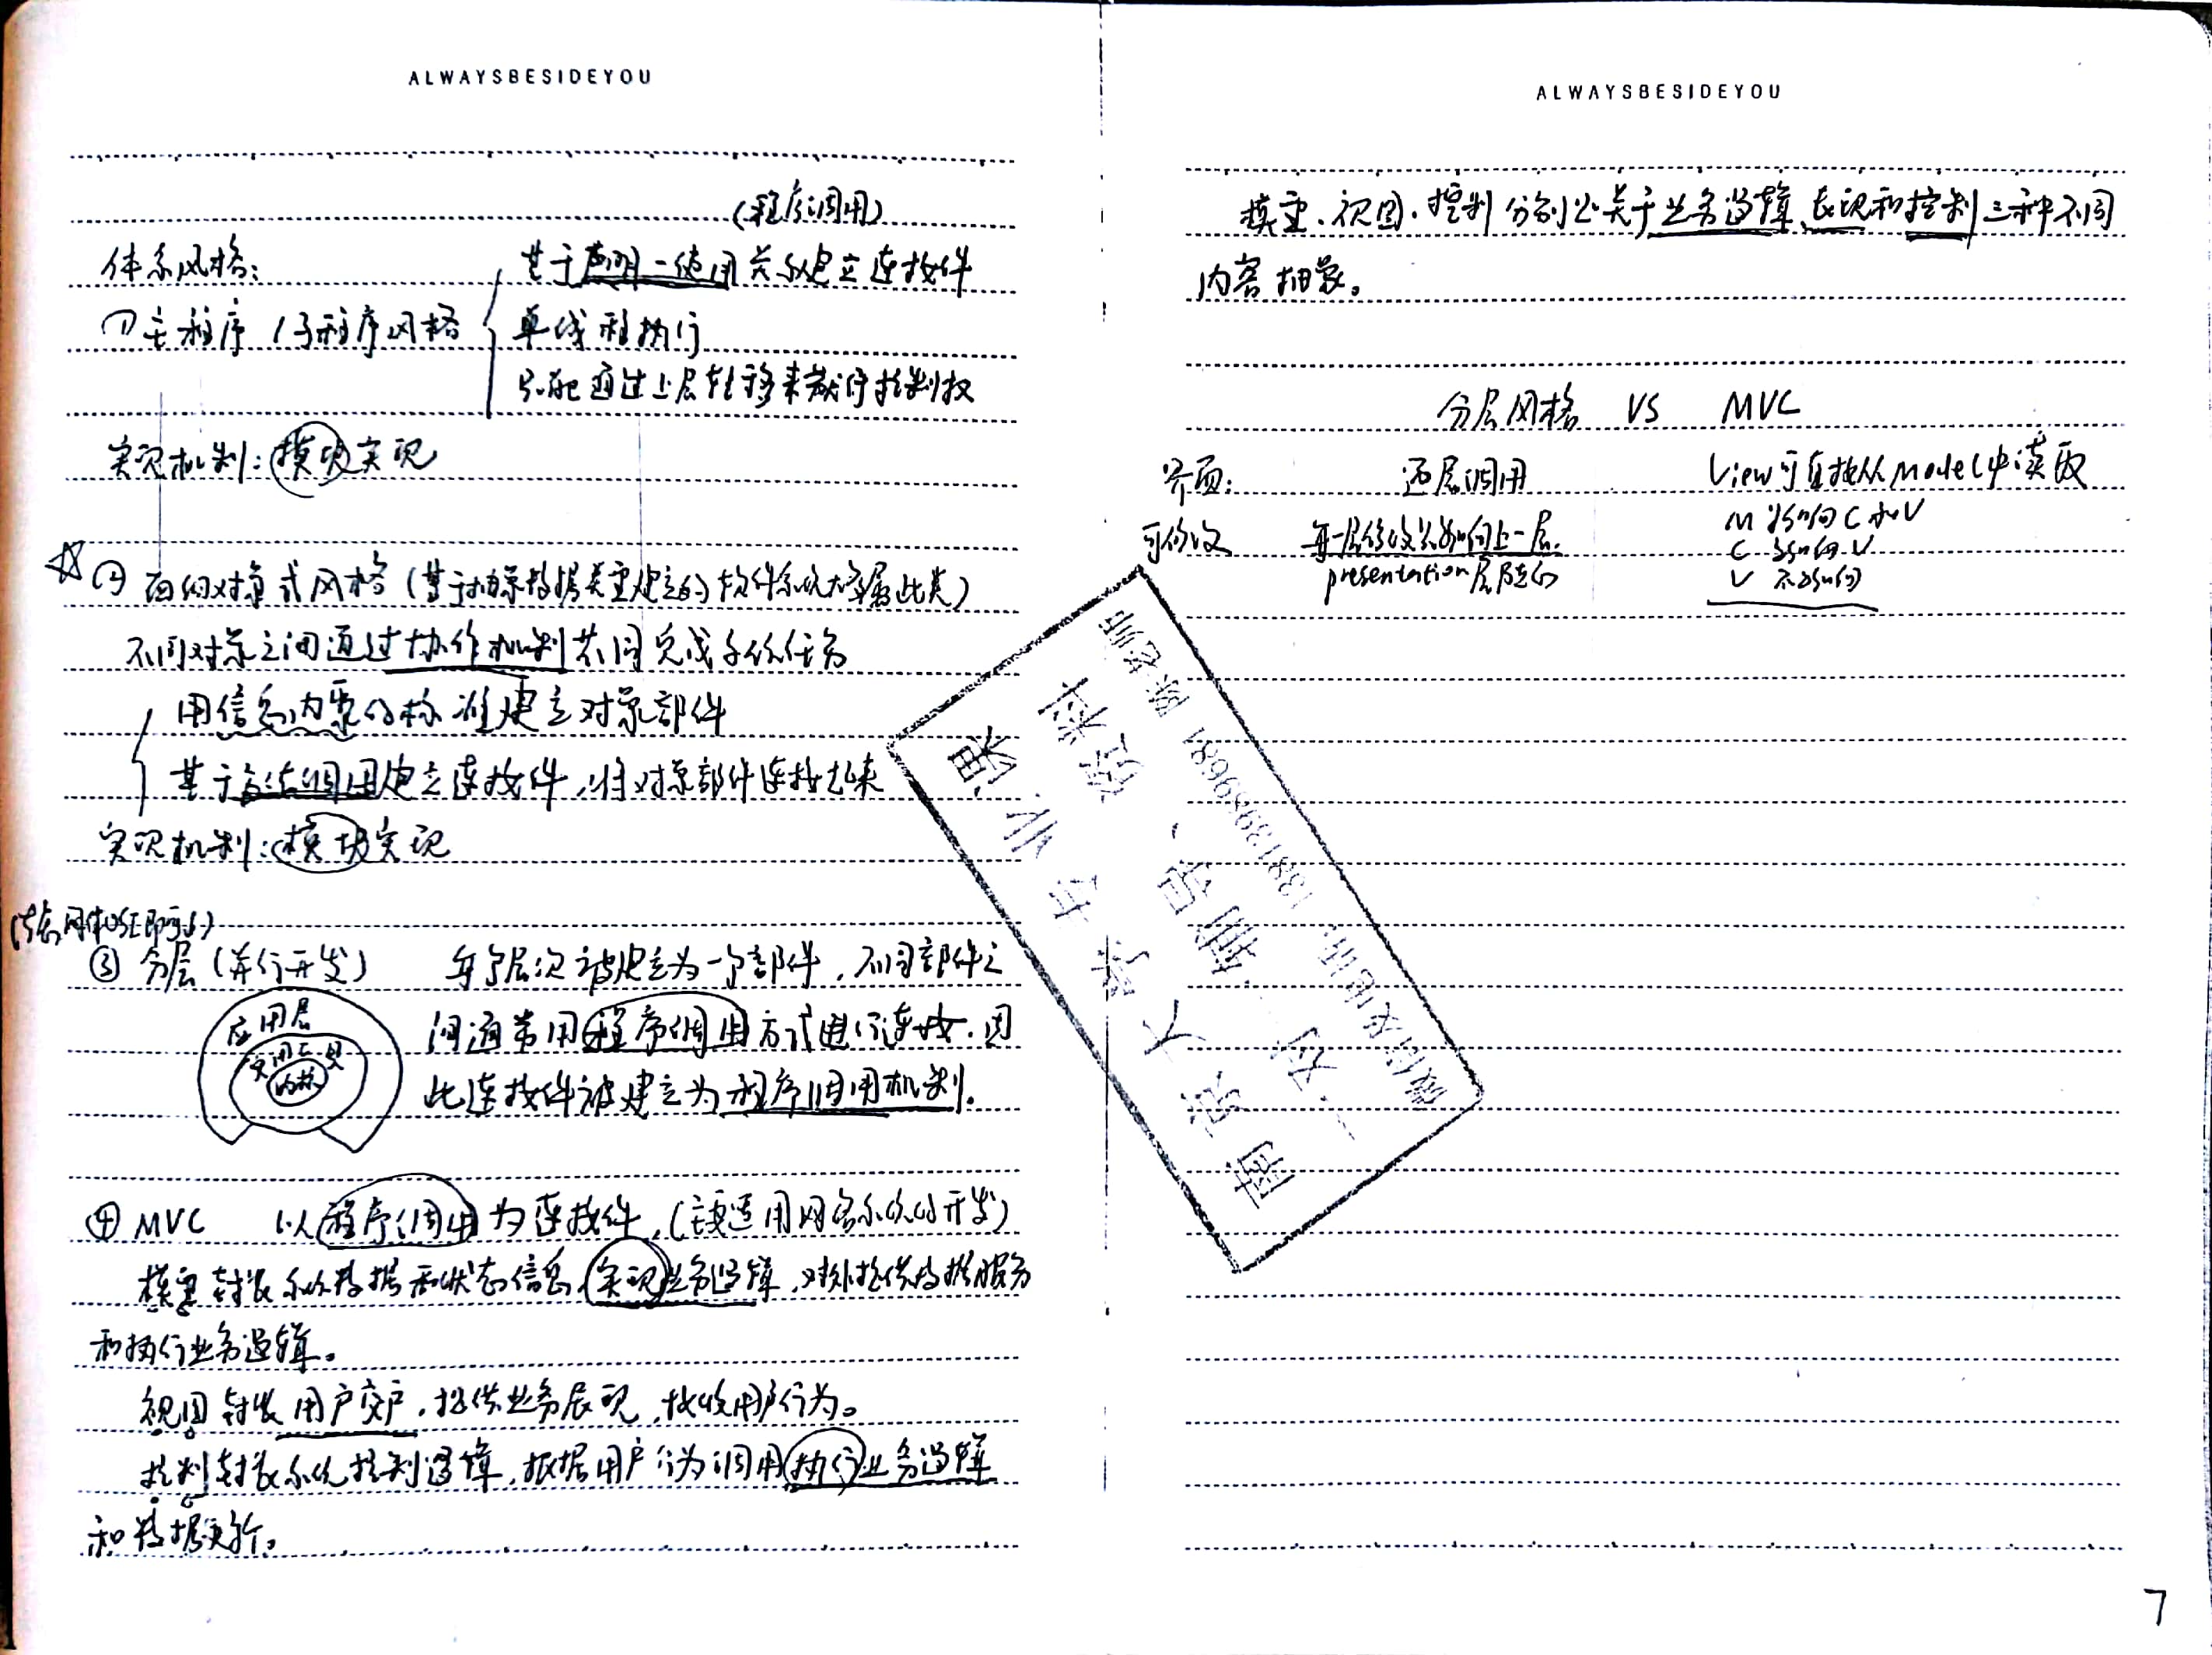 ALWAYSBESIDEYOU
(程序调用)
体系风格:
基于声明-使用关系建立连接件
①主程序/子程序风格
单线程执行
只能通过上层转移来获得控制权
实现机制:模块实现
☆② 面向对象式风格(基于抽象数据类型建立的软件系统大多属此类)
不同对象之间通过协作机制共同完成系统任务
用信息内聚的标准建立对象部件
基于方法调用建立连接件,将对象部件连接起来
实现机制:模块实现
③ 分层(并行开发) 每个层次被建立为一个部件,不同部件之
间通常用程序调用方式进行连接,因
此连接件被建立为程序调用机制.
应用层
实用工具
内核
④ MVC 以程序调用为连接件,(主要适用网络系统的开发)
模型封装系统数据和状态信息,实现业务逻辑,对外提供数据服务
和执行业务逻辑。
视图封装用户交户,提供业务展现,接收用户行为。
控制封装系统控制逻辑,根据用户行为调用执行业务逻辑
和数据更新。
ALWAYSBESIDEYOU
模型.视图.控制分别是关于业务逻辑、表现和控制三种不同
内容抽象。
分层风格 VS MVC
界面: 逐层调用 View可直接从Model中读取
可修改 每一层修改只影响上一层.
presentation层随意
M 影响C和V
C 影响V
V 不影响
南京大学软件
一对一辅导、资料
微信及电话: 13813989681 陈老师
7